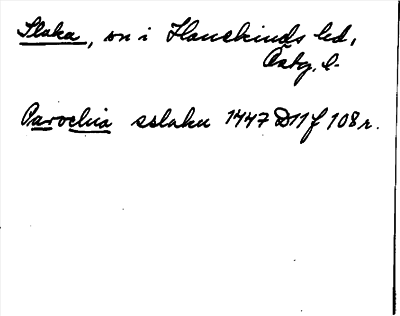 Slaka, sn i Hanekinds hd,
Östg. l.
Parochia sslaku 1447 D11 f 108 r.